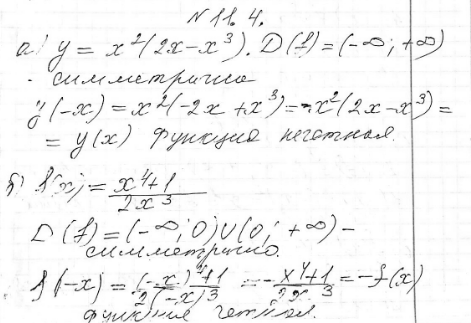 № 11. 4.
а) y = x²(2x-x³). D(f)=(-∞; +∞)
- симметрично
y(-x) = x²(-2x+x³) = -x²(2x-x³) =
= y(x) функция нечетная.
б) f(x) = (x⁴+1)/(2x³)
D(f) = (-∞; 0)∪(0; +∞) -
симметрично.
f(-x) = ((-x)⁴+1)/(2(-x)³) = -(x⁴+1)/(2x³) = -f(x)
функция четная.